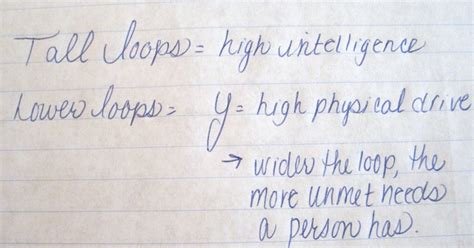 Tall loops = high intelligence
Lower loops = y = high physical drive
→ wider the loop, the
more unmet needs
a person has.